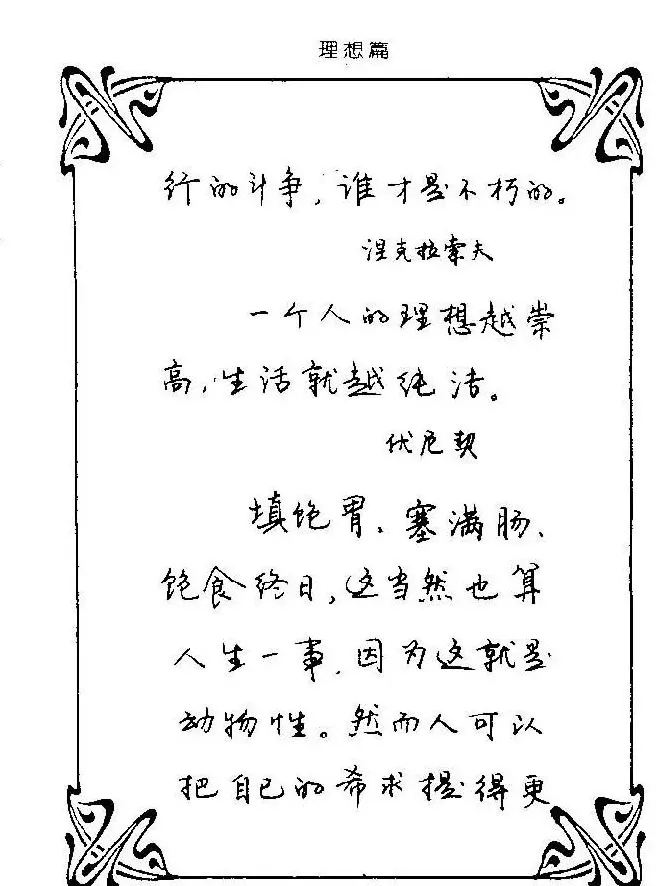 理想篇
行的斗争，谁才是不朽的。
涅克拉索夫
一个人的理想越崇
高，生活就越纯洁。
伏尼契
填饱胃、塞满肠、
饱食终日，这当然也算
人生一事，因为这就是
动物性。然而人可以
把自己的希求提得更